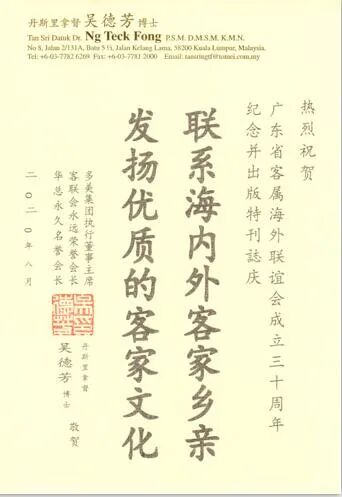 丹斯里拿督 吴德芳 博士
Tan Sri Datuk Dr. Ng Teck Fong P.S.M. D.M.S.M. K.M.N.
No 8, Jalan 2/131A, Batu 5 ½, Jalan Kelang Lama, 58200 Kuala Lumpur, Malaysia.
Tel: +6-03-7782 6269 Fax: +6-03-7781 2000 Email: tansringtf@tomei.com.my
热烈祝贺
广东省客属海外联谊会成立三十周年
纪念并出版特刊誌庆
联系海内外客家乡亲
发扬优质的客家文化
多美集团执行董事主席
客联会永远荣誉会长
华总永久名誉会长
丹斯里拿督
吴德芳 博士
敬贺
二〇二〇年八月